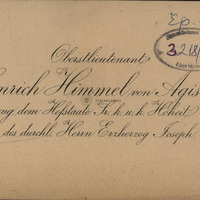 Ep.
3218
Oberstlieutenant
nrich Himmel von Agis
zug. dem Hofstaate Sr. k. u. k. Hoheit
des durchl. Herrn Erzherzog Joseph